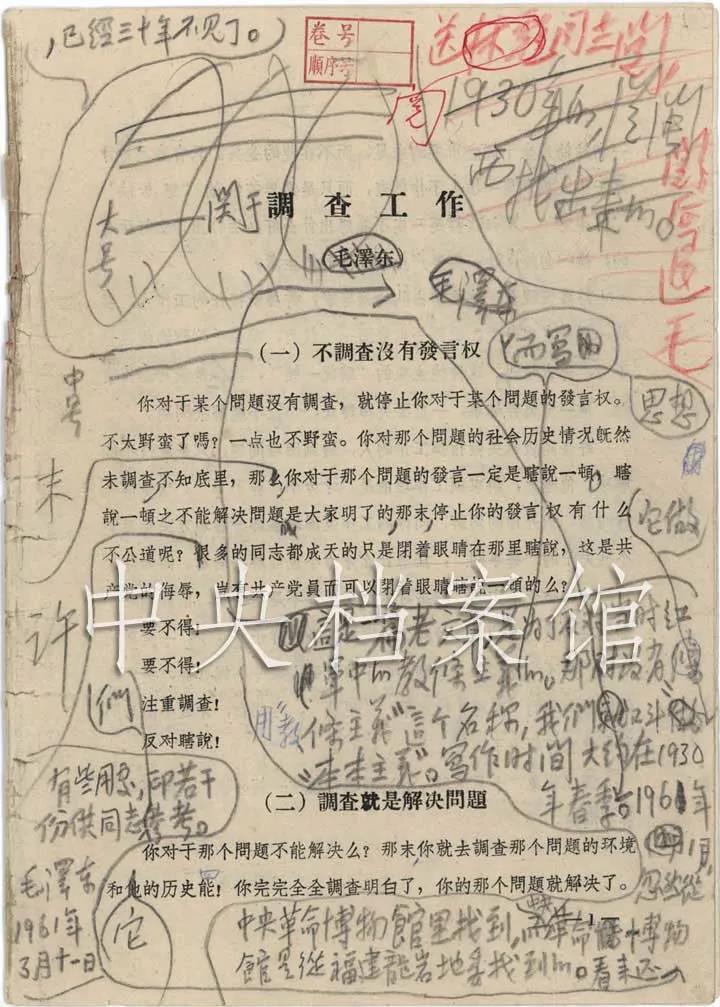 ，已經三十年不見了。
卷号
順序号
送林彪同志閲
閲后退毛
1930年的
找出来的。
大号
关于
調查工作
毛澤东
毛澤东
(一) 不調查沒有發言权
而寫的
中号
思想
你对于某个問題沒有調查，就停止你对于某个問題的發言权。
不太野蛮了嗎？一点也不野蛮。你对那个問題的社会历史情况旣然
末
未調查不知底里，那么你对于那个問題的發言一定是瞎說一頓，瞎
說一頓之不能解决問題是大家明了的，那末停止你的發言权有什么
它做
不公道呢？很多的同志都成天的只是閉着眼睛在那里瞎說，这是共
产党的侮辱，岂有共产党員而可以閉着眼睛瞎說一頓的么？
中央档案馆
許
要不得！
要不得！
注重調查！
反对瞎說！
們
這是一篇老文章，是为了反对当时紅
軍中的教條主義思想。那时没有
用“教
條主義”這个名称，我們叫它做
“本本主義”。寫作时間大約在1930
年春季。1961年
1月，
忽然從
有些用处，印若干
份供同志參考。
毛澤东
1961年
3月十一日
(二) 調查就是解决問題
你对于那个問題不能解决么？那末你就去調查那个問題的环境
和他的历史能！你完完全全調查明白了，你的那个問題就解决了。
它
— 1 —
中央革命博物館里找到，中央革命博物
館是從福建龍岩地委找到的。看来还